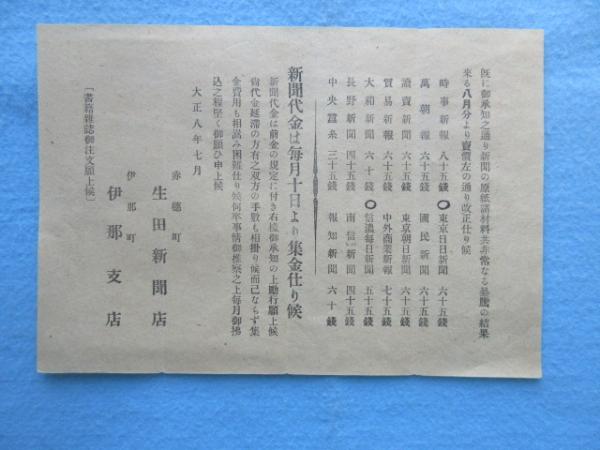 既に御承知之通り新聞の原紙諸材料共非常なる暴騰の結果
来る八月分より賣價左の通り改正仕り候
時事新報 八十五錢 〇東京日日新聞 六十五錢
萬朝報 六十五錢 國民新聞 六十五錢
讀賣新聞 六十五錢 東京朝日新聞 六十五錢
貿易新報 六十五錢 中外商業新報 七十五錢
大和新聞 六十錢 〇信濃毎日新聞 五十五錢
長野新聞 四十五錢 南信新聞 四十五錢
中央蠶糸 三十五錢 報知新聞 六十錢
新聞代金は毎月十日より集金仕り候
新聞代金は前金の規定に付き右樣御承知の上勵行願上候
尚代金延滯の方有之双方の手數も相掛り候而已ならず集
金費用も相嵩み困難仕り候何卒事情御推察之上毎月御拂
込之程堅く御願ひ申上候
大正八年七月
赤穗町
生田新聞店
伊那町
伊那支店
〔書籍雜誌御注文願上候〕